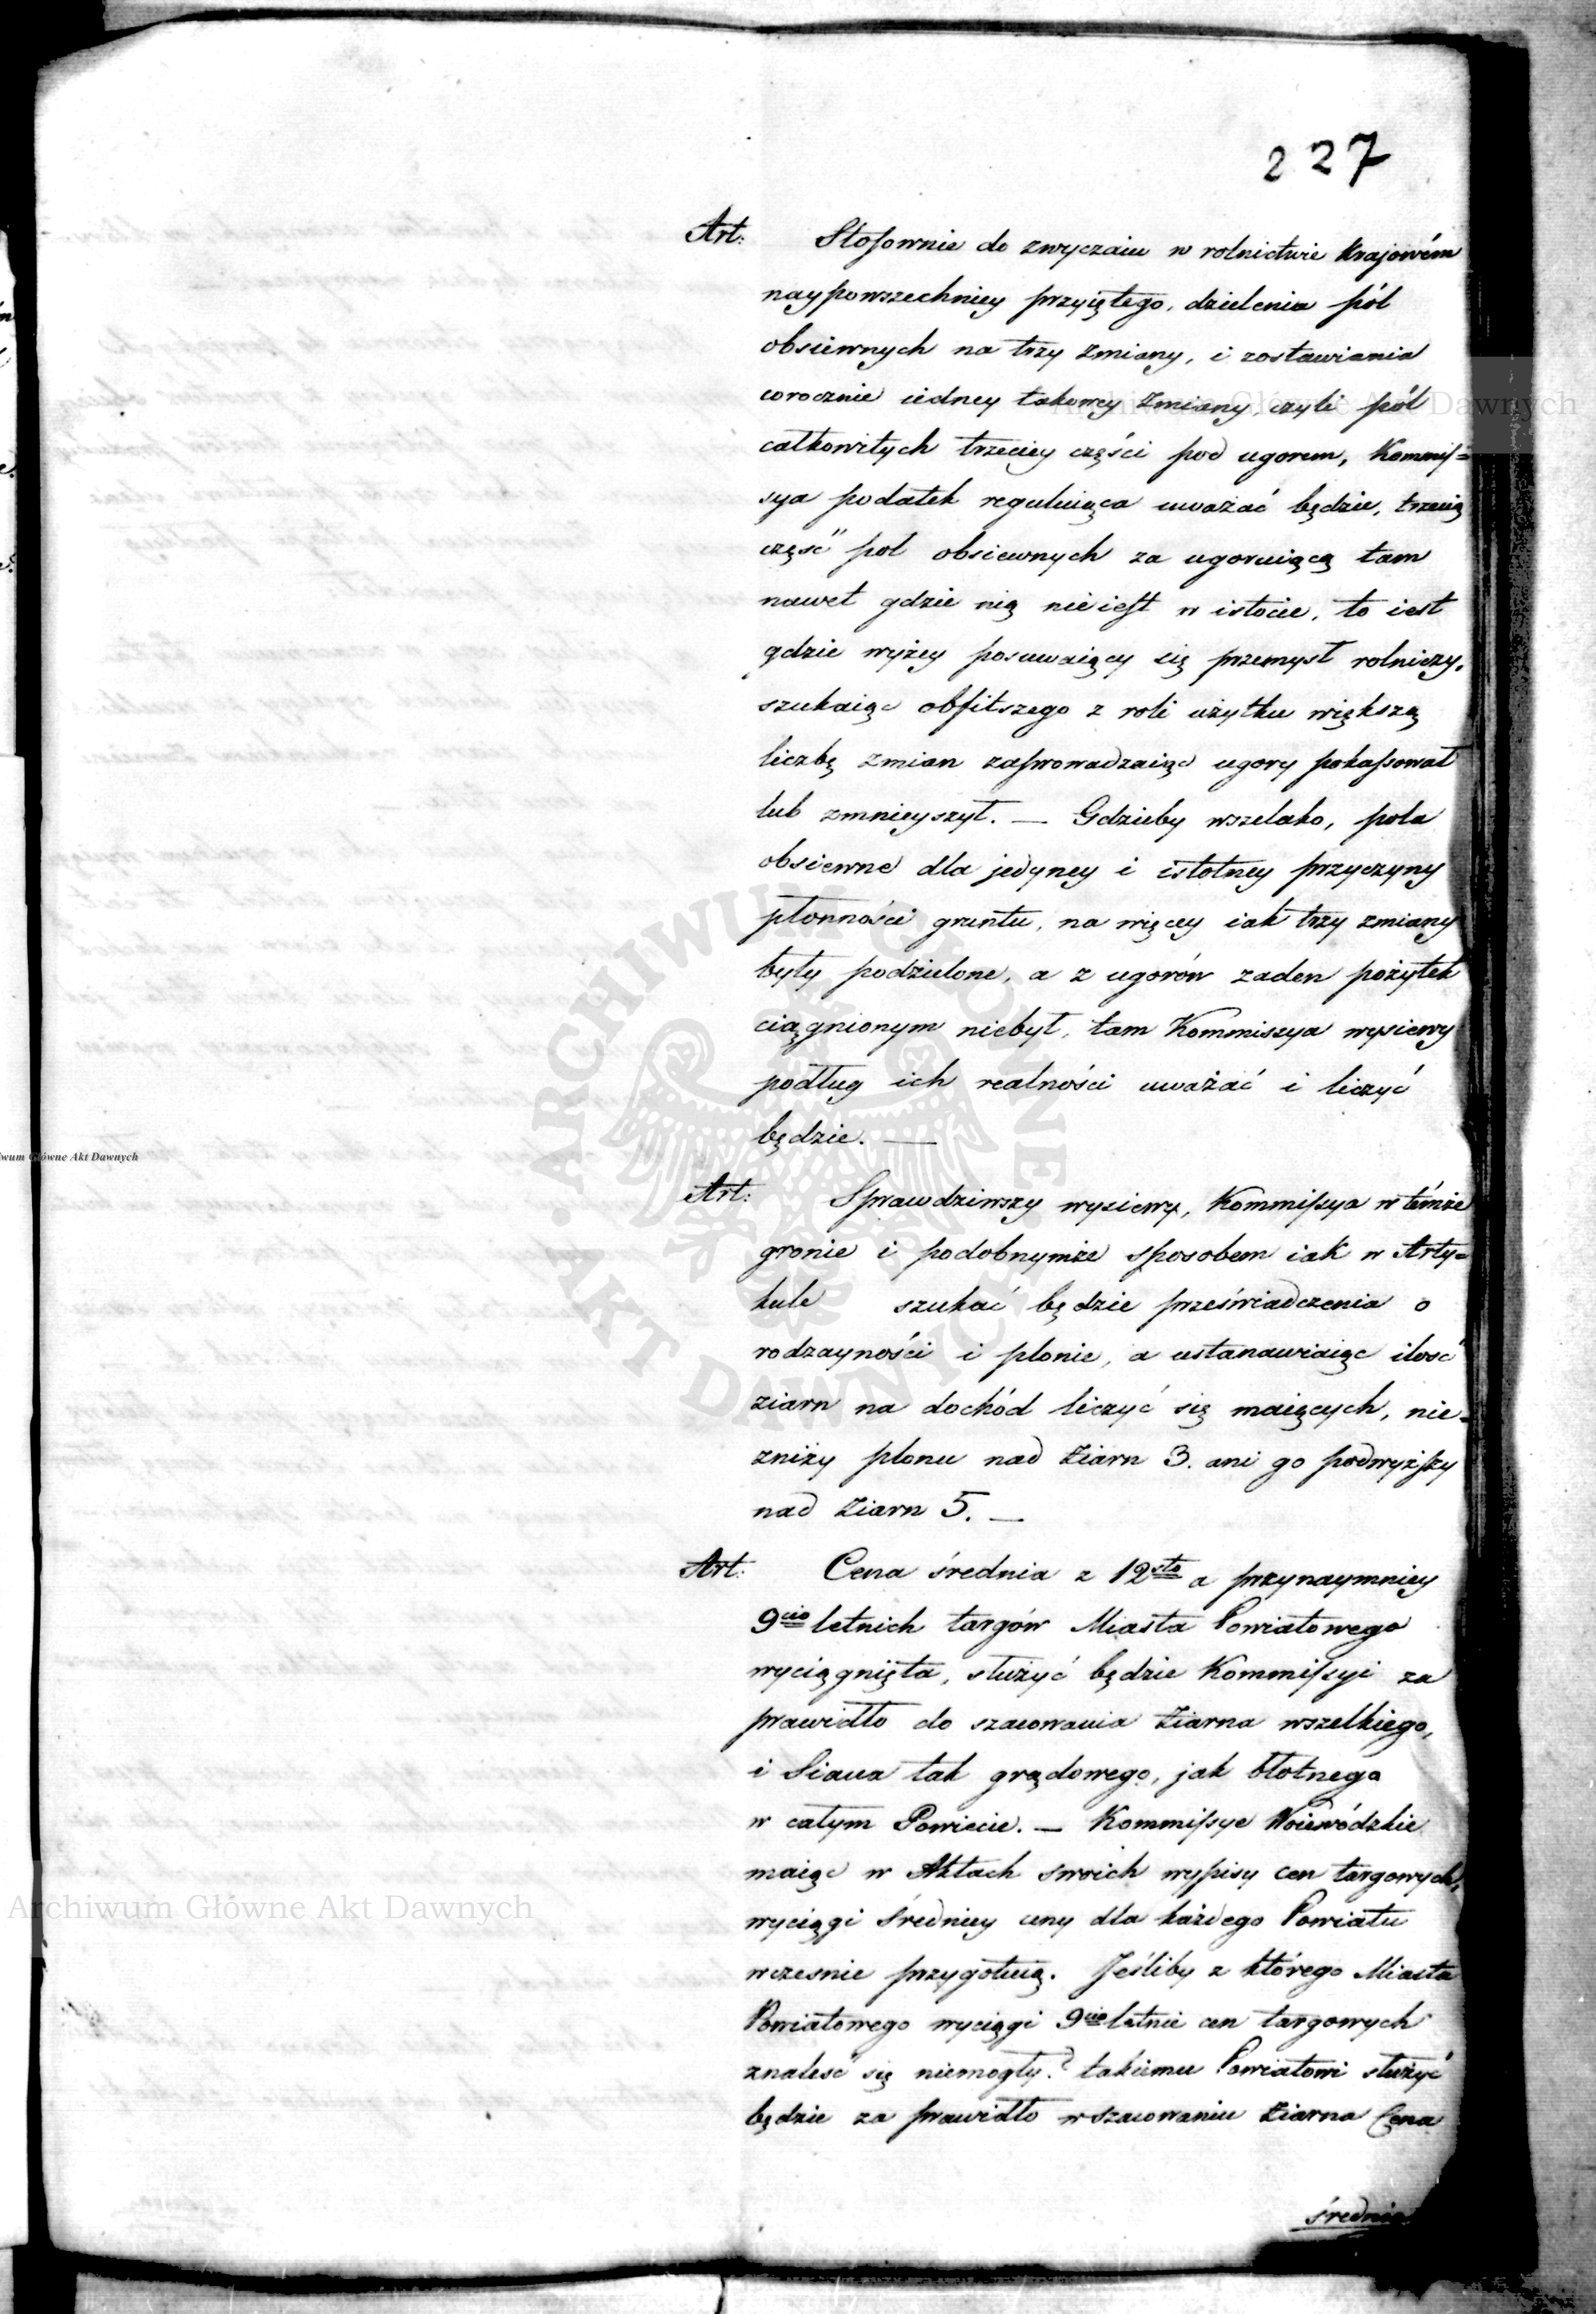 227
Art: Stosownie do zwyczaiu w rolnictwie Krajowém
naypowszechniey przyiętego, dzielenia pól
obsiewnych na trzy zmiany, i zostawiania
corocznie iedney takowey zmiany, czyli pól
całkowitych trzeciey części pod ugorem, Kommis=
sya podatek reguluiąca uważać będzie, trzecią
częsć pol obsiewnych za ugoruiącą tam
nawet gdzie nią nieiest w istocie, to iest
gdzie wyżey posuwaiący się przemysł rolniczy,
szukaiąc obfitszego z roli użytku większą
liczbę zmian zaprowadzaiąc ugory pokassował
lub zmnieyszył. — Gdzieby wszelako, pola
obsiewne dla jedyney i istotney przyczyny
płonności gruntu, na więcey iak trzy zmiany
były podzielone, a z ugorów żaden pożytek
ciągnionym niebył, tam Kommissya wysiewy
podług ich realności uważać i liczyć
będzie. —
Art: Sprawdziwszy wysiewy, Kommissya w témże
gronie i podobnymże sposobem iak w Arty=
kule szukać będzie przeświadczenia o
rodzayności i plonie, a ustanawiaiąc ilosć
ziarn na dochód liczyć się maiących, nie=
zniży plonu nad ziarn 3. ani go podwyższy
nad Ziarn 5. —
Art: Cena średnia z 12sto a przynaymniey
9cio letnich targów Miasta Powiatowego
wyciągnięta, służyć będzie Kommissyi za
prawidło do szacowania ziarna wszelkiego,
i Siana tak grądowego, jak błotnego
w całym Powiecie. — Kommissye Woiewódzkie
maiąc w Aktach swoich wypisy cen targowych,
wyciągi średniey ceny dla każdego Powiatu
wczesnie przygotuią. Jeśliby z którego Miasta
Powiatowego wyciągi 9cio letnie cen targowych
znalesć się niemogły? takiemu Powiatowi służyć
będzie za prawidło w szacowaniu ziarna Cena
średnia
Archiwum Główne Akt Dawnych
Archiwum Główne Akt Dawnych
iwum Główne Akt Dawnych
ARCHIWUM GŁÓWNE
AKT DAWNYCH